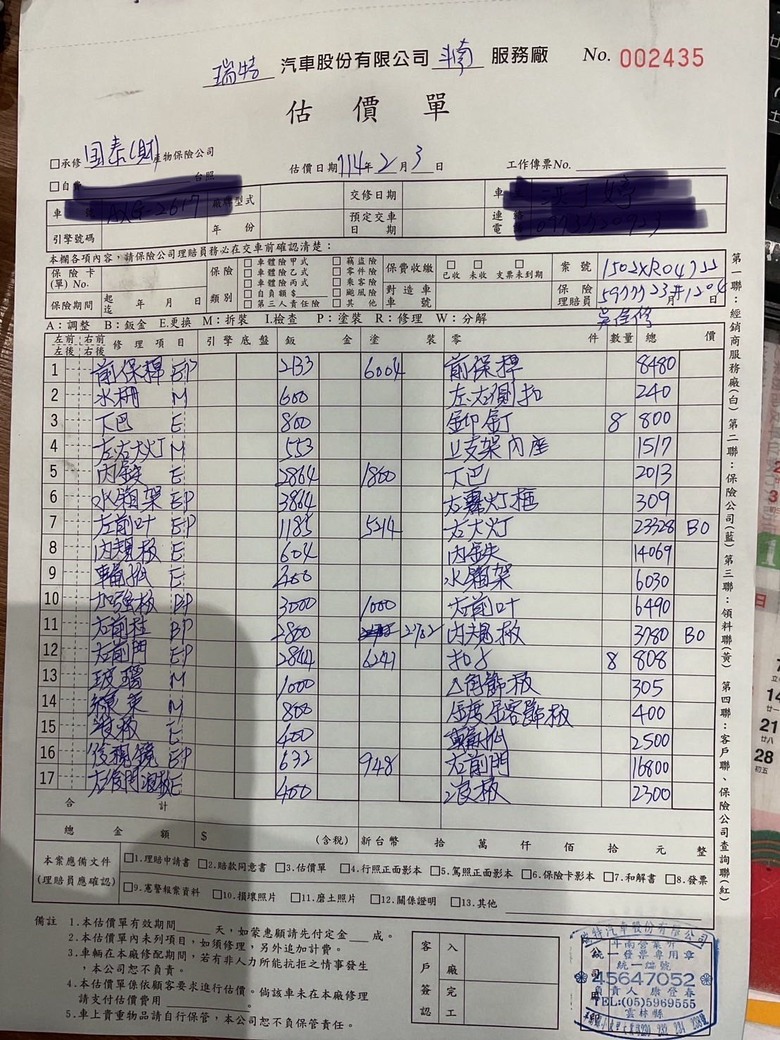 瑞特 汽車股份有限公司 斗南 服務廠 No. 002435
估價單
□承修 国泰(財)產物保險公司 估價日期 114年2月3日 工作傳票No.
□自 台照
車 廠牌型式 交修日期 車
引擎號碼 年份 預定交車日期 連絡電
本欄各項內容，請保險公司理賠員務必在交車前確認清楚：
保險卡(單)No. 保險類別 □車體險甲式 □竊盜險 保費收繳 □已收 □未收 □支票未到期 案號
□車體險乙式 □零件險
□車體險丙式 □乘客險
保險期間 起迄 年 月 日 □自負額$ □颱風險 對造車車號 保險理賠員 月 日
□第三人責任險 □其他
A：調整 B：鈑金 E.更換 M：拆裝 I.檢查 P：塗裝 R：修理 W：分解
左前 左後 右前 右後 修理項目 引擎底盤 鈑金 塗裝 零件 數量 總價
1 前保桿 EP 2133 6004 前保桿 8480
2 水柵 M 600 左右側扣 240
3 下巴 E 800 鉚釘 8 800
4 左右大灯 M 553 支架內座 1517
5 內鉄 E 2864 1800 下巴 2013
6 水箱架 EP 3864 右霧灯框 309
7 右前叶 EP 1185 5314 右大灯 23328 BO
8 內規板 E 604 內鉄 14069
9 輪弧 E 400 水箱架 6030
10 加強板 BP 3000 1000 右前叶 6490
11 右前柱 BP 2800 2702 內規板 3780 BO
12 右前門 EP 2844 6247 扣子 8 808
13 玻璃 M 1000 △角飾板 305
14 M 800 飾板 400
15 板 E 400 輪弧 2500
16 後視鏡 EP 632 948 右前門 16800
17 右後門 板 E 400 板 2300
合計
總金額 $ (含稅) 新台幣 拾 萬 仟 佰 拾 元 整
本案應備文件(理賠員應確認) □1.理賠申請書 □2.賠款同意書 □3.估價單 □4.行照正面影本 □5.駕照正面影本 □6.保險卡影本 □7.和解書 □8.發票
□9.憲警報案資料 □10.損壞照片 □11.磨土照片 □12.關係證明 □13.其他
備註 1.本估價單有效期間 天，如蒙惠顧請先付定金 成。
2.本估價單內未列項目，如須修理，另外追加計費。
3.車輛在本廠修配期間，若有非人力所能抗拒之情事發生，本公司恕不負責。
4.本估價單係依顧客要求進行估價。倘該車未在本廠修理請支付估價費用
5.車上貴重物品請自行保管，本公司恕不負保管責任。
客戶簽認 入廠 完工
瑞特汽車股份有限公司
斗南營業所
統一發票專用章
統一編號
45647052
負責人
TEL:(05)5969555
雲林縣
第一聯：經銷商服務廠(白) 第二聯：保險公司(藍) 第三聯：領料聯(黃) 第四聯：客戶聯、保險公司查詢聯(紅)
14
21
28